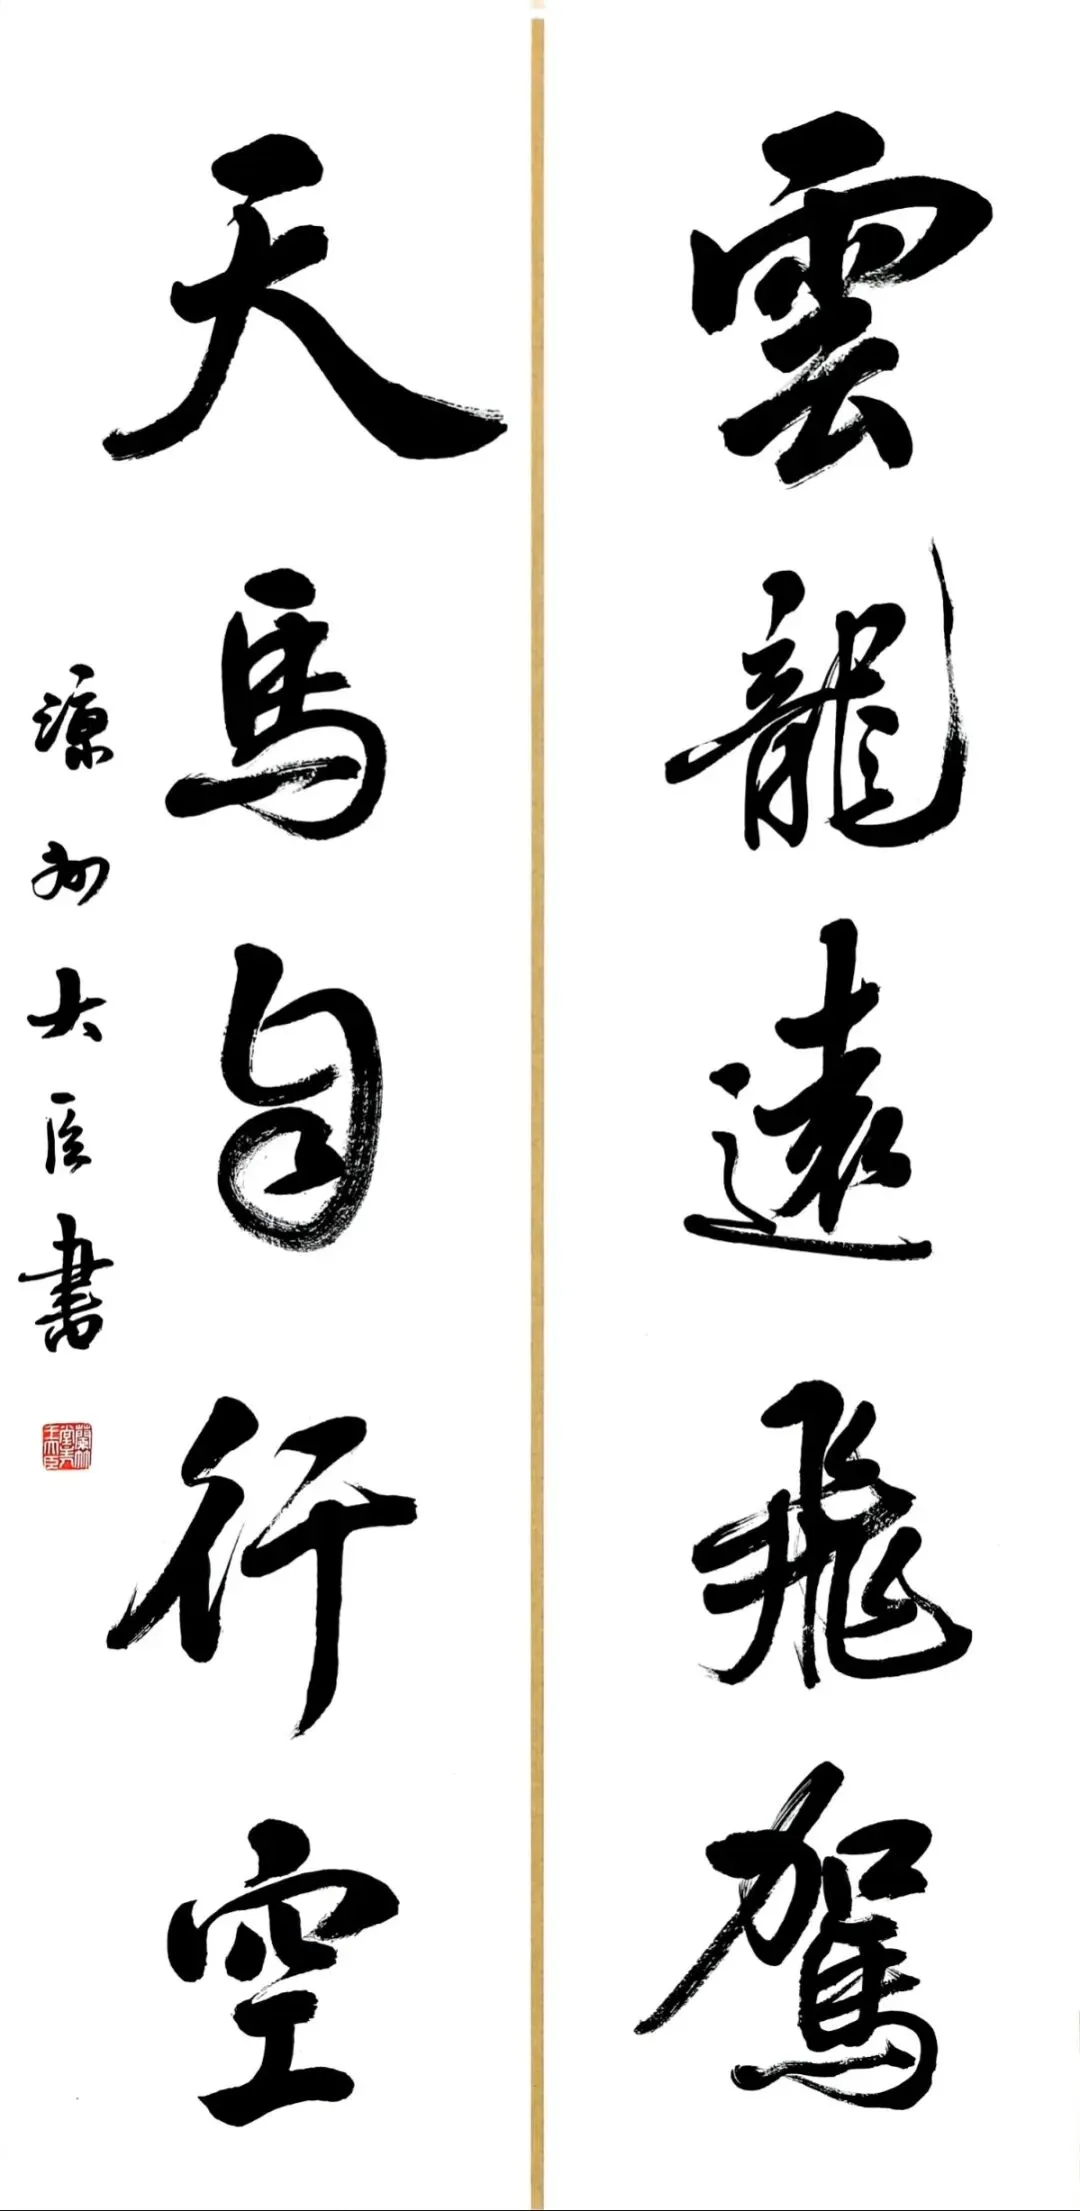 雲龍遠飛駕
天馬自行空
源州大臣書